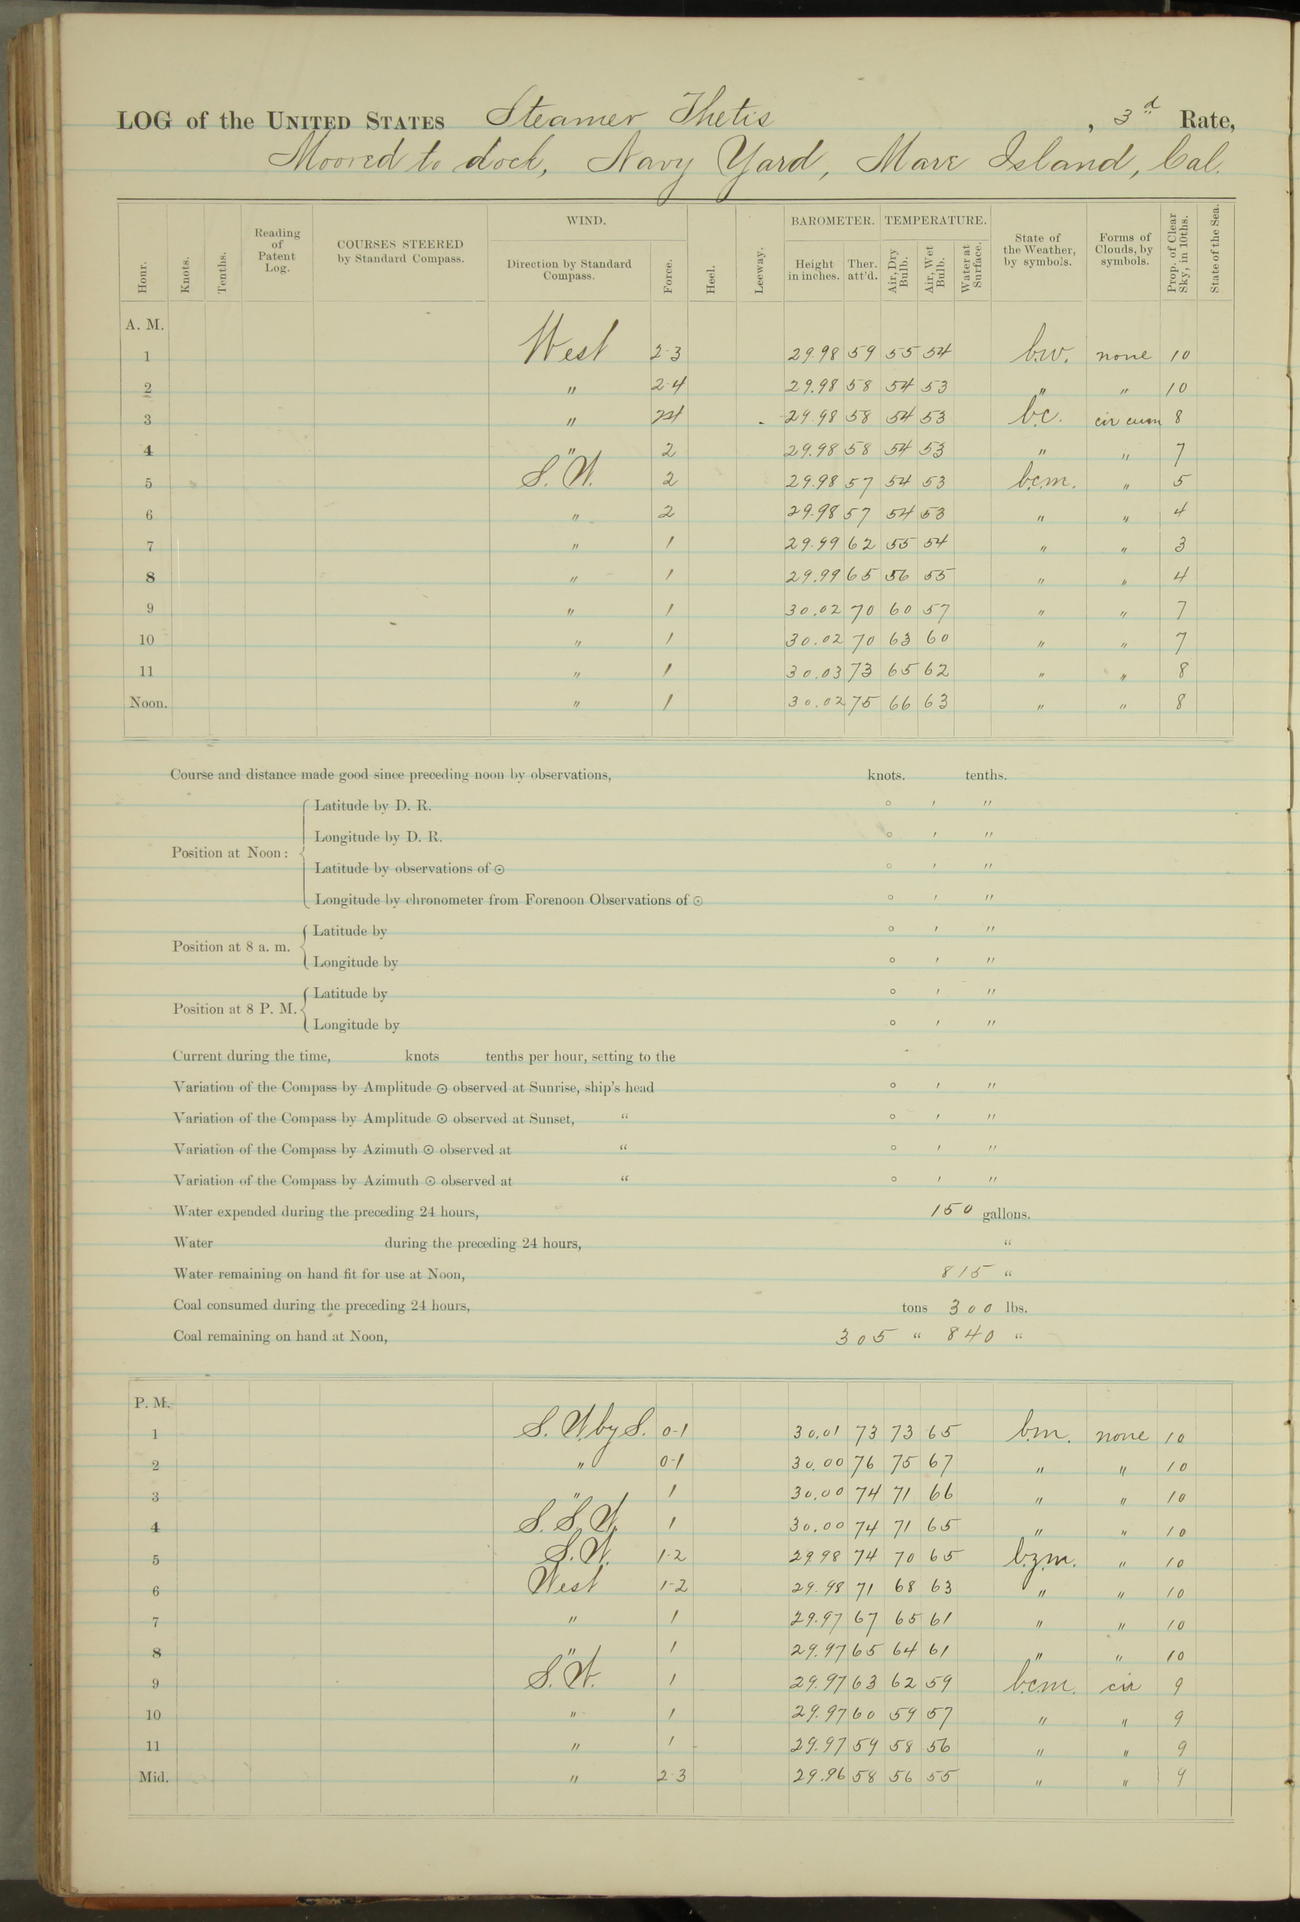 LOG of the UNITED STATES Steamer Thetis, 3d Rate,
Moored to dock, Navy Yard, Mare Island, Cal.
Hour. Knots. Tenths. Reading of Patent Log. COURSES STEERED by Standard Compass. WIND. Direction by Standard Compass. Force. Heel. Leeway. BAROMETER. Height in inches. Ther. att'd. TEMPERATURE. Air, Dry Bulb. Air, Wet Bulb. Water at Surface. State of the Weather, by symbols. Forms of Clouds, by symbols. Prop. of Clear Sky, in 10ths. State of the Sea.
A. M.
1 West 2-3 29.98 59 55 54 b.w. none 10
2 " 2-4 29.98 58 54 53 " " 10
3 " 29.98 58 54 53 b.c. cir cum 8
4 " 2 29.98 58 54 53 " " 7
5 S.W. 2 29.98 57 54 53 b.c.m. " 5
6 " 2 29.98 57 54 53 " " 4
7 " 1 29.99 62 55 54 " " 3
8 " 1 29.99 65 56 55 " " 4
9 " 1 30.02 70 60 57 " " 7
10 " 1 30.02 70 63 60 " " 7
11 " 1 30.03 73 65 62 " " 8
Noon. " 1 30.02 75 66 63 " " 8
Course and distance made good since preceding noon by observations, knots. tenths.
Position at Noon:
Latitude by D. R. ° ' "
Longitude by D. R. ° ' "
Latitude by observations of ⊙ ° ' "
Longitude by chronometer from Forenoon Observations of ⊙ ° ' "
Position at 8 a. m.
Latitude by ° ' "
Longitude by ° ' "
Position at 8 P. M.
Latitude by ° ' "
Longitude by ° ' "
Current during the time, knots tenths per hour, setting to the
Variation of the Compass by Amplitude ⊙ observed at Sunrise, ship's head ° ' "
Variation of the Compass by Amplitude ⊙ observed at Sunset, " ° ' "
Variation of the Compass by Azimuth ⊙ observed at " ° ' "
Variation of the Compass by Azimuth ⊙ observed at " ° ' "
Water expended during the preceding 24 hours, 150 gallons.
Water during the preceding 24 hours, "
Water remaining on hand fit for use at Noon, 815 "
Coal consumed during the preceding 24 hours, tons 300 lbs.
Coal remaining on hand at Noon, 305 " 840 "
P. M.
1 S.W. by S. 0-1 30.01 73 73 65 b.m. none 10
2 " 0-1 30.00 76 75 67 " " 10
3 " 1 30.00 74 71 66 " " 10
4 S.S.W. 1 30.00 74 71 65 " " 10
5 S.W. 1-2 29.98 74 70 65 b.z.m. " 10
6 West 1-2 29.98 71 68 63 " " 10
7 " 1 29.97 67 65 61 " " 10
8 " 1 29.97 65 64 61 " " 10
9 S.W. 1 29.97 63 62 59 b.c.m. cir 9
10 " 1 29.97 60 59 57 " " 9
11 " 1 29.97 59 58 56 " " 9
Mid. " 2-3 29.96 58 56 55 " " 9